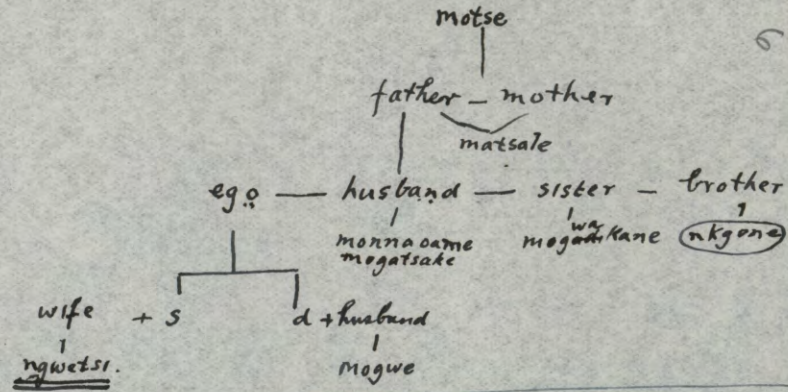 motse
6
father - mother
matsale
ego - husband - sister - brother
monna oame mogawakane nkgone
mogatsake
wife + s d + husband
ngwetsi. mogwe